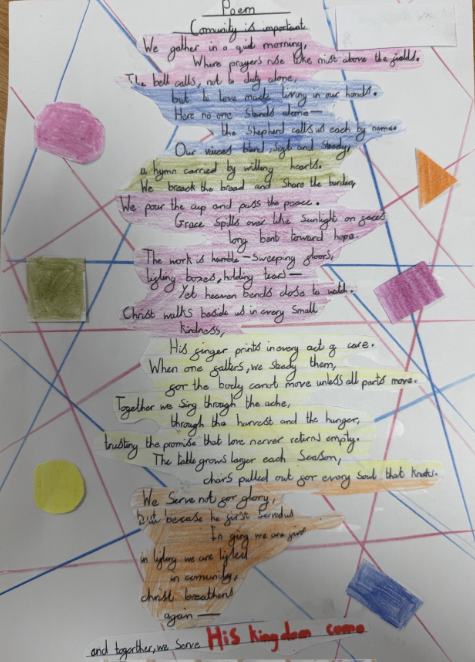 Poem
Comunity is important
We gather in a quid morning,
Where prayers rise like mist above the fields.
The bell calls, not to duty alone,
but to love made living in our hands.
Here no one stands alone—
the Shepherd calls us each by name.
Our voices blend, soft and steady,
a hymn carried by willing hearts.
We break the bread and share the burden,
We pour the cup and pass the peace.
Grace spills over like sunlight on faces
long bent toward hope.
The work is humble—sweeping floors,
lifting boxes, holding tears—
Yet heaven bends close to watch.
Christ walks beside us in every small
kindness,
His finger prints in every act of care.
When one falters, we steady them,
for the body canot move unless all parts move.
Together we sing through the ache,
through the harvest and the hunger,
trusting the promise that love nerver returns empty.
The table grows larger each Season,
chairs pulled out for every soul that knocks.
We Serve not for glory,
but becase he first
In giving we are
in lifting we are lifted
in comunity,
christ breathers
again—
and together, we serve His kingdom come